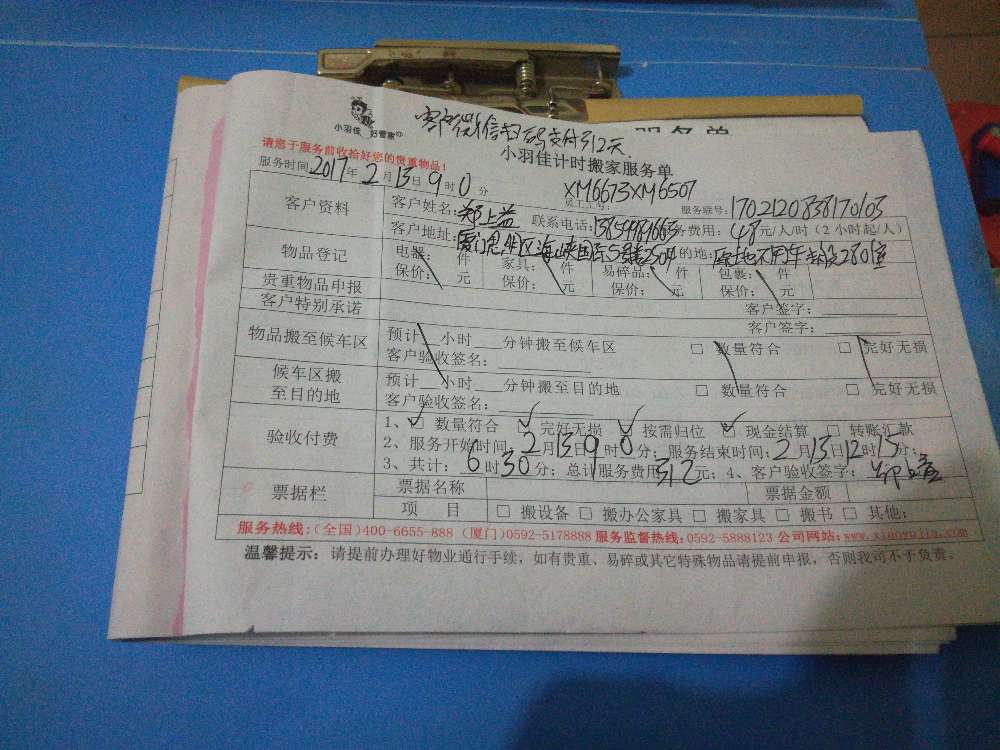 小羽佳 好管家
客户微信扫码支付312元
服务单
小羽佳计时搬家服务单
请您于服务前收拾好您的贵重物品!
服务时间: 2017年2月13日9时0分
XM6673XM6507
员工工号:
服务联号: 1702120838170103
客户资料
客户姓名: 郑上益 联系电话: 务费用: 48元/人/时(2小时起/人)
客户地址: 厦门思明区海峡国际 的地:
物品登记
电器: 件 家具: 件 易碎品: 件 包裹: 件
保价: 元 保价: 元 保价: 元 保价: 元
贵重物品申报 客户签字:
客户特别承诺 客户签字:
物品搬至候车区
预计__小时___分钟搬至候车区 □ 数量符合 □ 完好无损
客户验收签名:
候车区搬至目的地
预计__小时___分钟搬至目的地 □ 数量符合 □ 完好无损
客户验收签名:
验收付费
1、☑ 数量符合 ☑ 完好无损 ☑ 按需归位 ☑ 现金结算 □ 转账汇款
2、服务开始时间: 2月13日9时0分; 服务结束时间: 2月13日12时15分;
3、共计: 6时30分; 总计服务费用312元; 4、客户验收签字:
票据栏
票据名称 票据金额
项 目 □ 搬设备 □ 搬办公家具 □ 搬家具 □ 搬书 □ 其他:
服务热线:(全国)400-6655-888 (厦门)0592-5178888 服务监督热线:0592-5888123 公司网站:www.xiaoyujia.com
温馨提示: 请提前办理好物业通行手续,如有贵重、易碎或其它特殊物品请提前申报,否则我司不于负责。